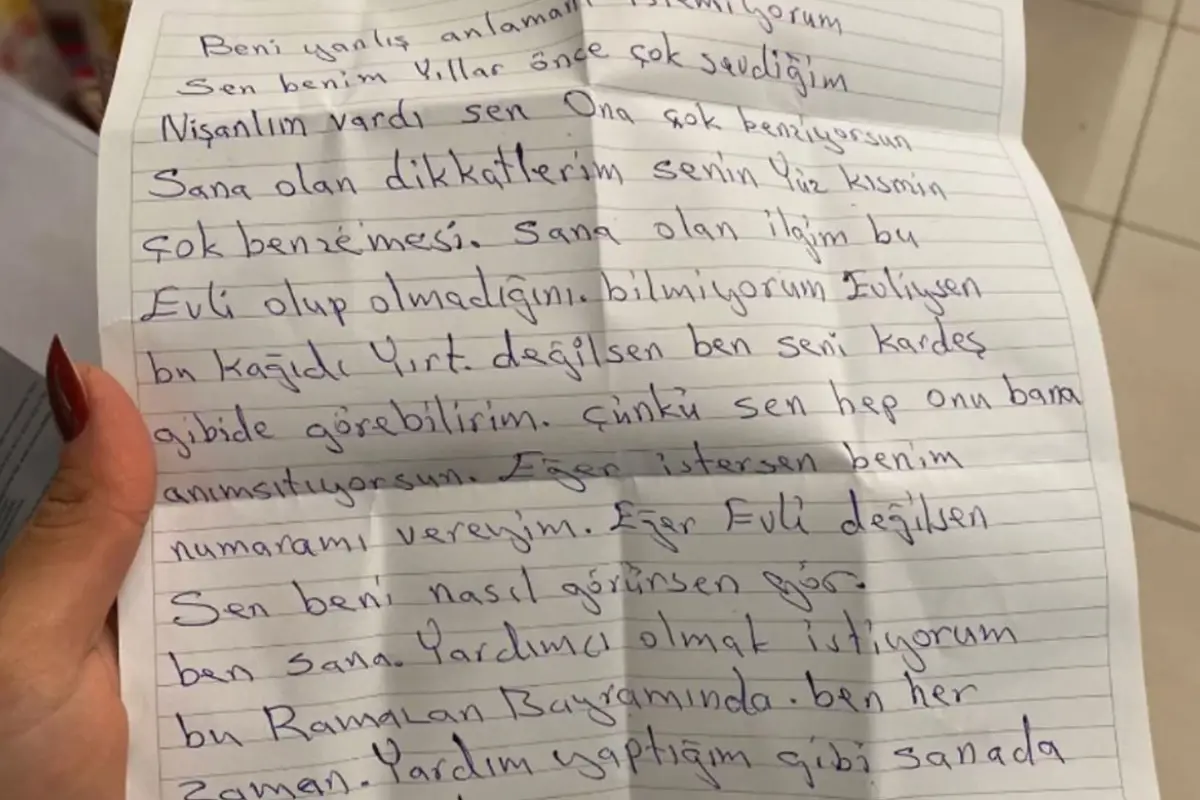 Beni yanlış anlamanı istemiyorum
Sen benim Yıllar önce çok sevdiğim
Nişanlım vardı sen Ona çok benziyorsun
Sana olan dikkatlerim senin Yüz kısmin
çok benzemesi. Sana olan ilgim bu
Evli olup olmadığını. bilmiyorum Evliysen
bu kağıdı Yırt. değilsen ben seni kardeş
gibide görebilirim. Çünkü sen hep onu bana
anımsıtıyorsun. Eğer istersen benim
numaramı vereyim. Eğer Evli değilsen
Sen beni nasıl görürsen gör.
ben sana. Yardımcı olmak istiyorum
bu Ramazan Bayramında. ben her
zaman. Yardım yaptığım gibi sanada